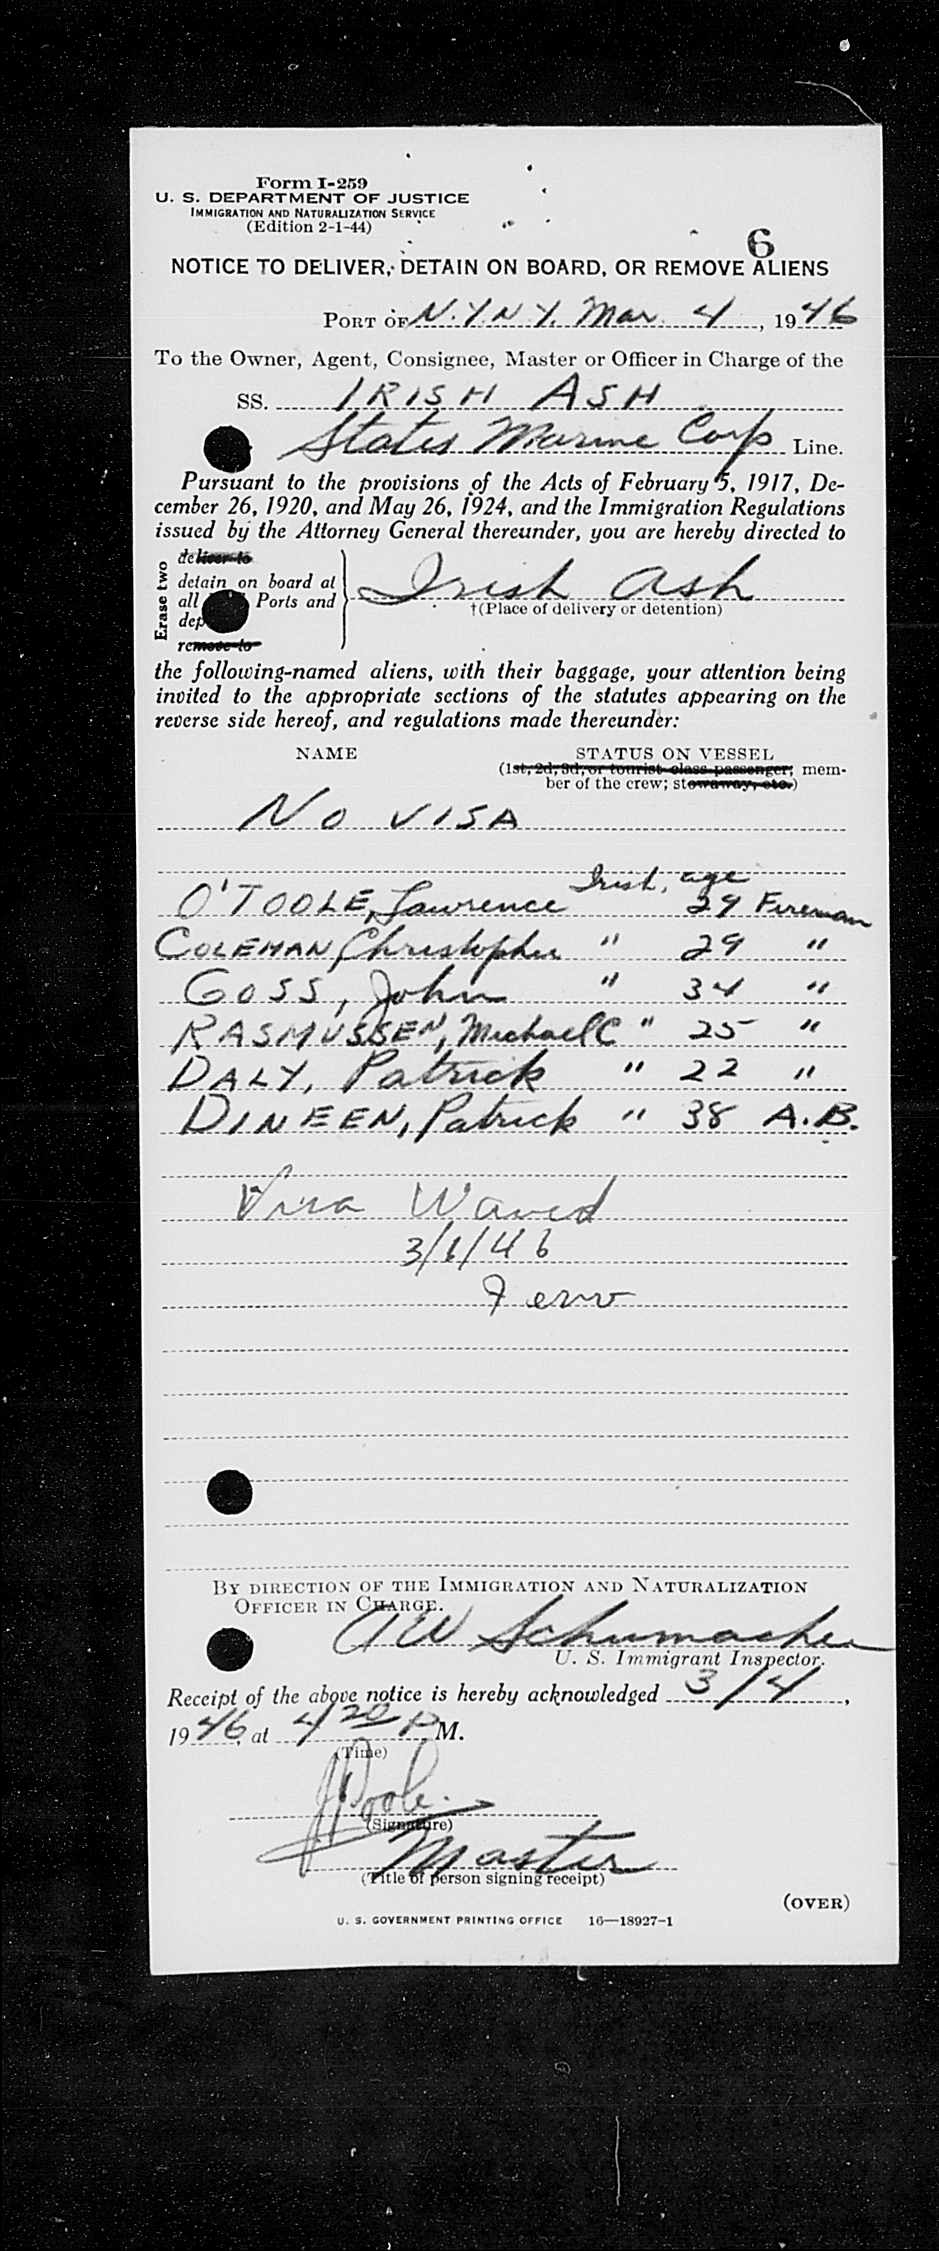 Form I-259
U. S. DEPARTMENT OF JUSTICE
IMMIGRATION AND NATURALIZATION SERVICE
(Edition 2-1-44)
6
NOTICE TO DELIVER, DETAIN ON BOARD, OR REMOVE ALIENS
PORT OF N.Y.N.Y. Mar. 4, 1946
To the Owner, Agent, Consignee, Master or Officer in Charge of the
SS. IRISH ASH
States Marine Corp Line.
Pursuant to the provisions of the Acts of February 5, 1917, De-
cember 26, 1920, and May 26, 1924, and the Immigration Regulations
issued by the Attorney General thereunder, you are hereby directed to
Erase two
deliver to
detain on board at
all Ports and
dep
remove to
Irish Ash
†(Place of delivery or detention)
the following-named aliens, with their baggage, your attention being
invited to the appropriate sections of the statutes appearing on the
reverse side hereof, and regulations made thereunder:
NAME STATUS ON VESSEL
(1st, 2d, 3d, or tourist class passenger; mem-
ber of the crew; stowaway, etc.)
NO VISA
Irish, age
O'TOOLE, Lawrence 29 Fireman
COLEMAN, Christopher " 29 "
GOSS, John " 34 "
RASMUSSEN, Michael C " 25 "
DALY, Patrick " 22 "
DINEEN, Patrick " 38 A.B.
Visa Waved
3/6/46
BY DIRECTION OF THE IMMIGRATION AND NATURALIZATION
OFFICER IN CHARGE.
AW Schumacher
U. S. Immigrant Inspector.
Receipt of the above notice is hereby acknowledged 3/4,
1946, at 4 20 P M.
(Time)
J Poole.
(Signature)
Master
(Title of person signing receipt)
(OVER)
U. S. GOVERNMENT PRINTING OFFICE 16—18927-1